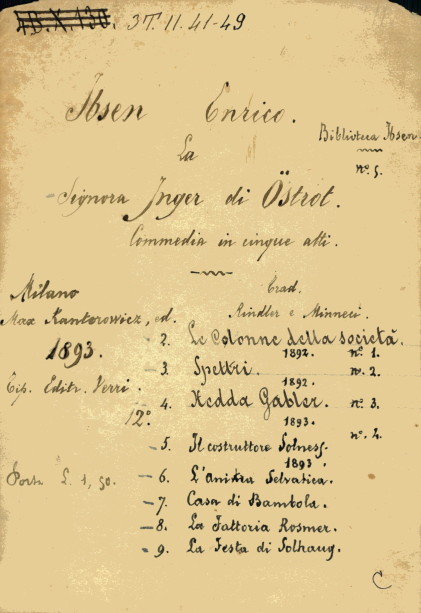 1B.X.130. 3T.11.41-49
Ibsen Enrico.
Biblioteca Ibsen
n.° 5.
La
Signora Inger di Östrot.
Commedia in cinque atti.
Milano
Max Kantorowicz, ed.
1893.
Tip. Editr. Verri.
12.°
Trad.
Rindler e Minneci.
- 2. Le Colonne della società.
1892. n.° 1.
- 3. Spettri. n.° 2.
1892.
4. Hedda Gabler. n.° 3.
1893.
- 5. Il costruttore Solness. n.° 4.
1893.
L. 1,50.
- 6. L'anitra Selvatica.
- 7. Casa di Bambola.
- 8. La Fattoria Rosmer.
- 9. La Festa di Solhaug.
C